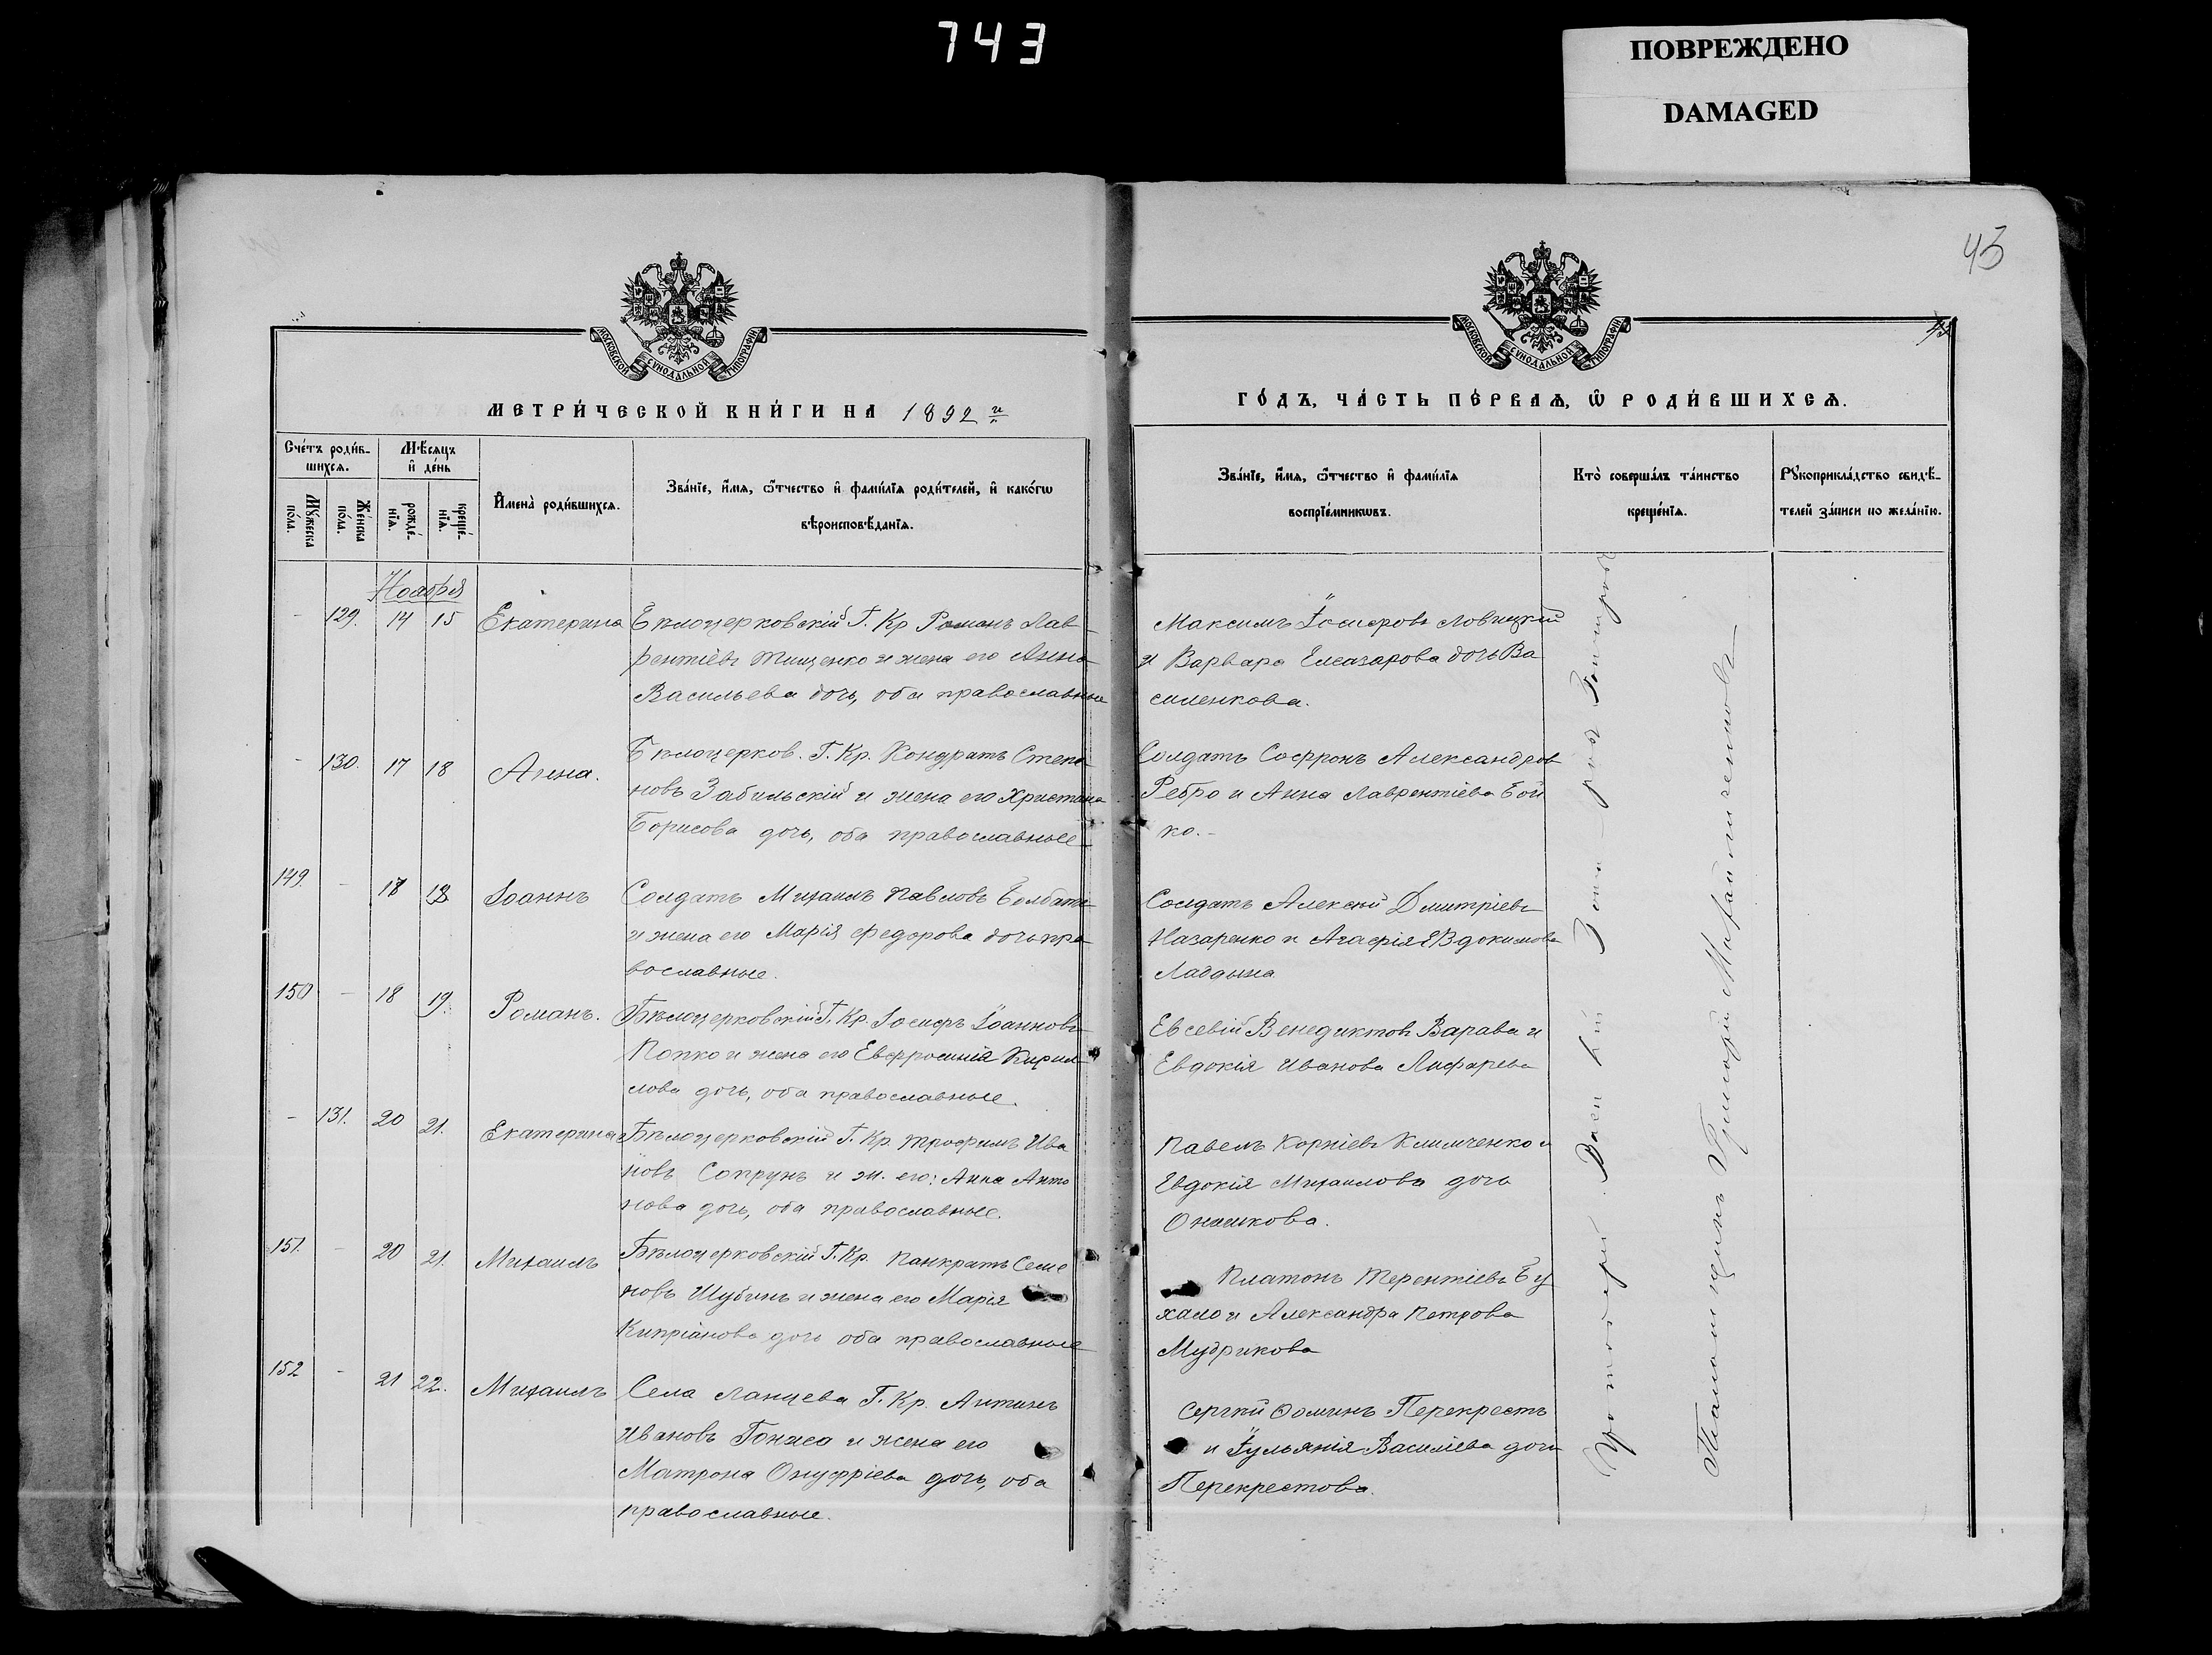 743
ПОВРЕЖДЕНО
DAMAGED
43
МОСКОВСКОЙ СѴНОДАЛЬНОЙ ТИПОГРАФІИ
МОСКОВСКОЙ СѴНОДАЛЬНОЙ ТИПОГРАФІИ
МЕТРИ́ЧЕСКОЙ КНИ́ГИ НА 1892 й
ГО́ДЪ, ЧА́СТЬ ПЕ́РВАѦ, Ѿ РОДИ́ВШИХСѦ.
Сче́тъ роди́в-
шихсѧ.
Мꙋ́жеска по́ла.
Же́нска по́ла.
Мѣ́сѧцъ
и҆ де́нь
рожде́-
нїѧ.
креще́-
нїѧ.
И҆мена̀ роди́вшихсѧ.
Зва́нїе, и҆́мѧ, ѻ҆́тчество и҆ фами́лїѧ роди́телей, и҆ како́гѡ
вѣроисповѣ́данїѧ.
Зва́нїе, и҆́мѧ, ѻ҆́тчество и҆ фами́лїѧ
воспрїе́мникѡвъ.
Кто̀ соверша́лъ та́инство
креще́нїѧ.
Рꙋкоприкла́дство свидѣ́-
телей за́писи по жела́нїю.
Ноября
- 129. 14 15 Екатерина Бѣлоцерковскій Г. Кр Романъ Лав
рентіевъ Тищенко и жена его Анна
Васильева дочь, оба православные
Максимъ Іосифовъ Ловицкій
и Варвара Елеазарова дочь Ва
силенкова.
- 130. 17 18 Анна. Бѣлоцерков. Г. Кр. Кондратъ Степа
новъ Забильскій и жена его Христина
Борисова дочь, оба православные
Солдатъ Софронъ Александров
Ребро и Анна Лаврентіева Бой
ко.-
149. - 18 Іоаннъ Солдатъ Михаилъ Павловъ
и жена его Марія Федорова дочь пра
вославные.
Солдатъ Алексѣй Дмитріевъ
Назаренко и Агафія Евдокимова
150 - 18 19. Романъ. Бѣлоцерковскій Г. Кр. Іосифъ Іоанновъ
Попко и жена его Евфросинія Кирил
лова дочь, оба православные.
Евсевій Венедиктовъ Варава и
Евдокія Иванова Лифарева
- 131. 20 21. Екатерина Бѣлоцерковскій Г. Кр. Трофимъ Ива
новъ Сопрунъ и ж. его: Анна Анто
нова дочь, оба православные.
Павелъ Корніевъ Климченко и
Евдокія Михаилова дочь
151. - 20 21. Михаилъ Бѣлоцерковскій Г. Кр. Панкратъ Семе
новъ Шубинъ и жена его Марія
Кипріанова дочь оба православные
Платонъ Терентіевъ Бу
хало и Александра Петрова
Мудрикова
152 - 21 22. Михаилъ Села Ланцева Г. Кр. Антинъ
Ивановъ Гонжа и жена его
Матрона Онуфріева дочь, оба
православные.
Сергѣй Ѳоминъ Перекрестъ
и Іульянія Василіева дочь
Перекрестова.
Протоіерей
Григорій